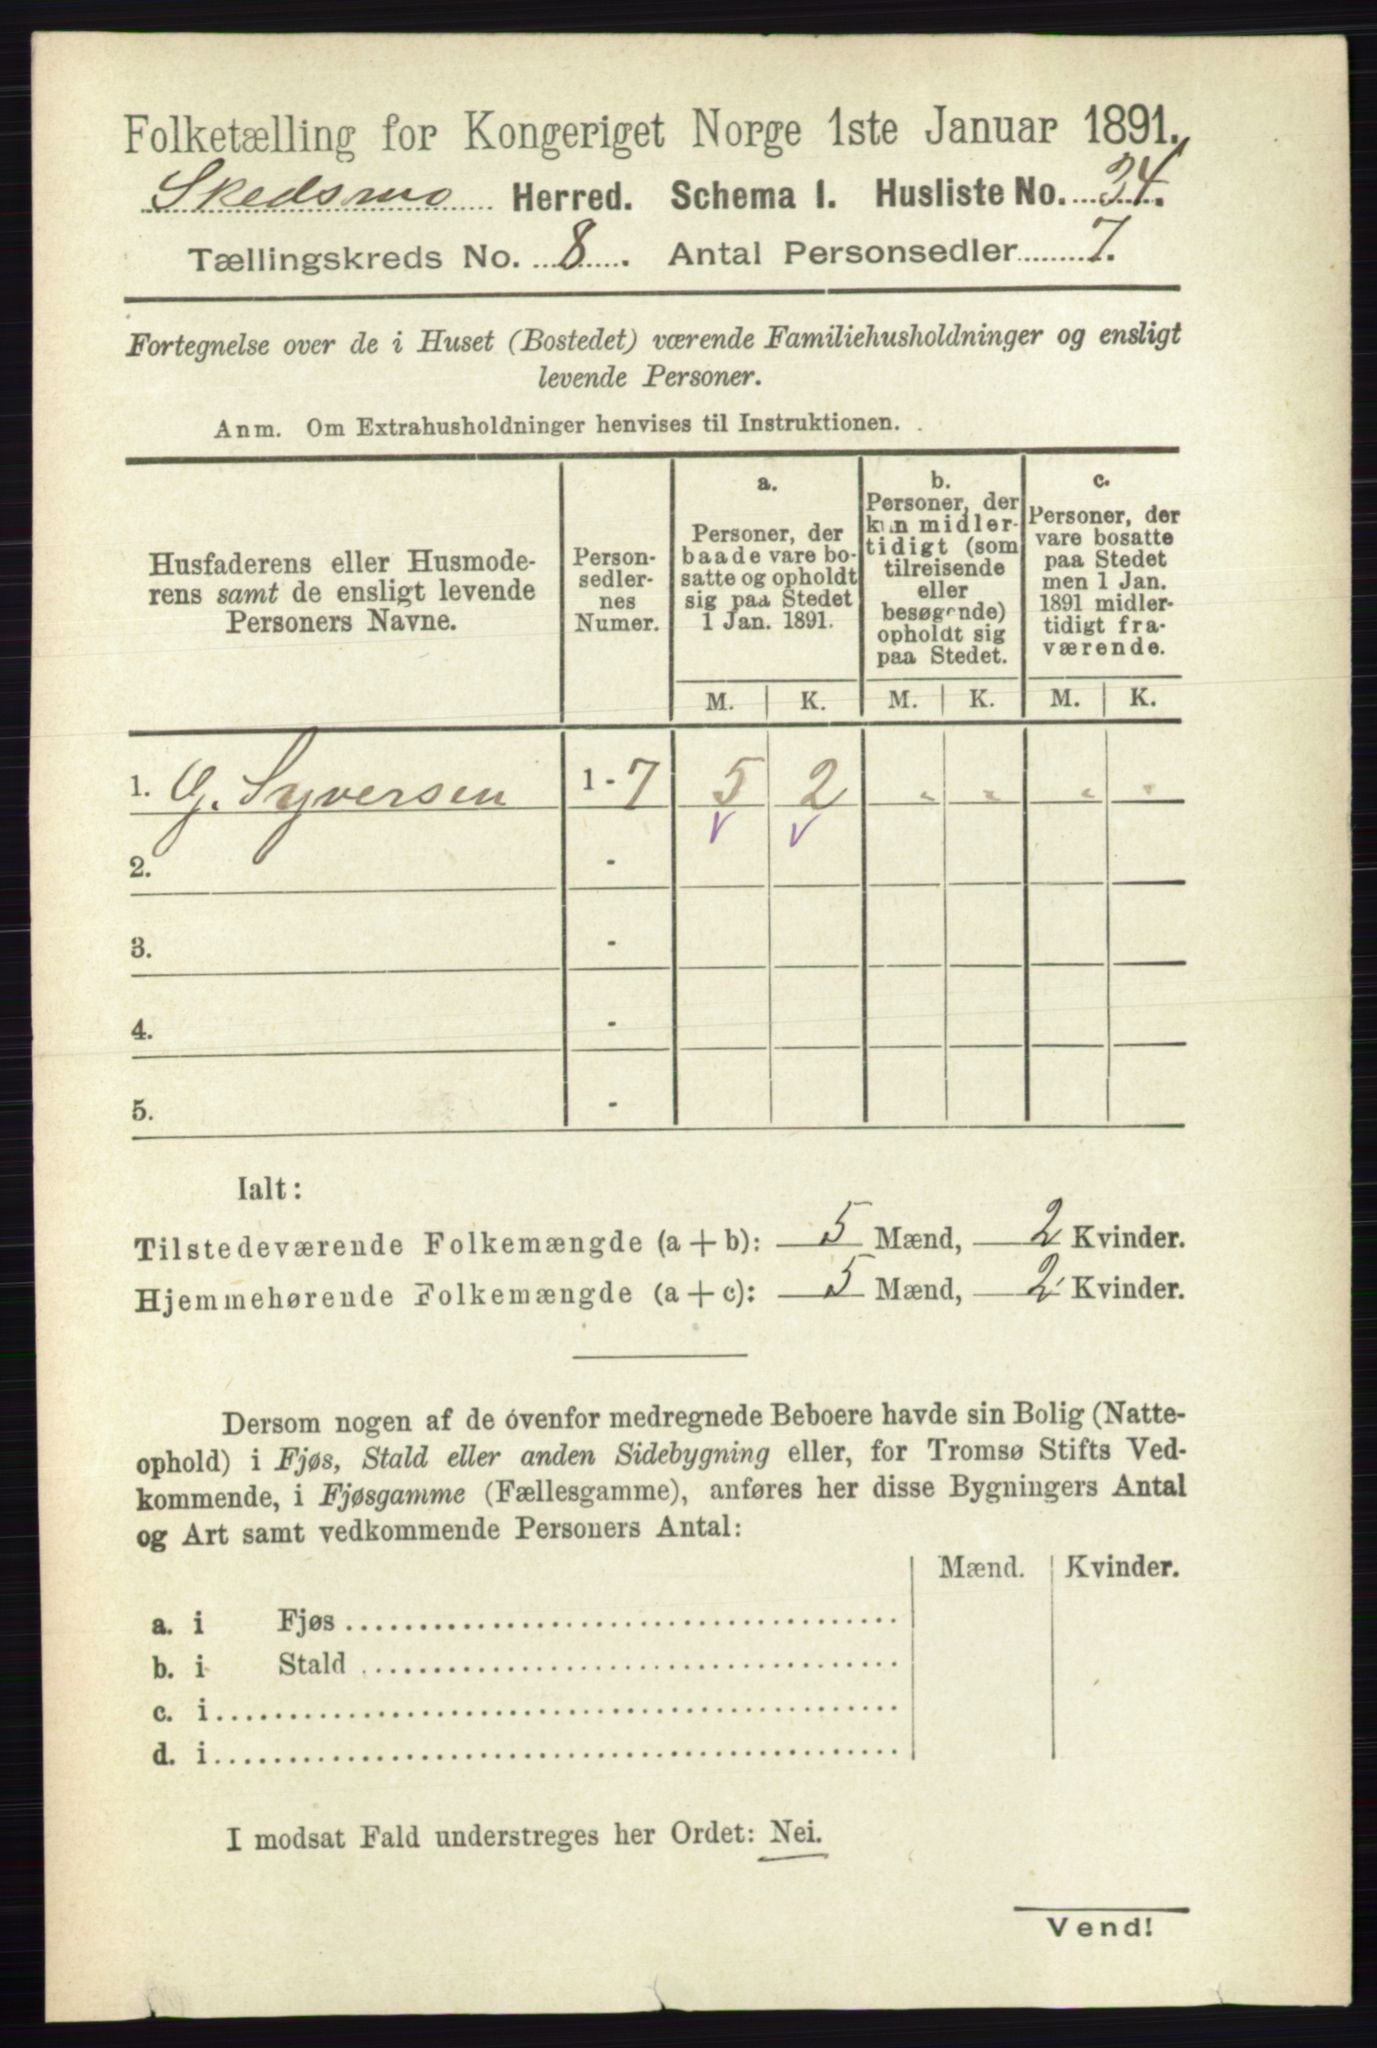 Folketælling for Kongeriget Norge 1ste Januar 1891.
Skedsmo Herred. Schema I. Husliste No. 34.
Tællingskreds No. 8. Antal Personsedler 7.
Fortegnelse over de i Huset (Bostedet) værende Familiehusholdninger og ensligt
levende Personer.
Anm. Om Extrahusholdninger henvises til Instruktionen.
Husfaderens eller Husmode-
rens samt de ensligt levende
Personers Navne.
Person-
sedler-
nes
Numer.
a.
Personer, der
baade vare bo-
satte og opholdt
sig paa Stedet
1 Jan. 1891.
b.
Personer, der
kun midler-
tidigt (som
tilreisende
eller
besøgende)
opholdt sig
paa Stedet.
c.
Personer, der
vare bosatte
paa Stedet
men 1 Jan.
1891 midler-
tidigt fra-
værende.
M. K. M. K. M. K.
1. G. Syversen 1 - 7 5 2 " " " "
2. -
3. -
4. -
5. -
Ialt:
Tilstedeværende Folkemængde (a + b): 5 Mænd, 2 Kvinder.
Hjemmehørende Folkemængde (a + c): 5 Mænd, 2 Kvinder.
Dersom nogen af de ovenfor medregnede Beboere havde sin Bolig (Natte-
ophold) i Fjøs, Stald eller anden Sidebygning eller, for Tromsø Stifts Ved-
kommende, i Fjøsgamme (Fællesgamme), anføres her disse Bygningers Antal
og Art samt vedkommende Personers Antal:
Mænd. Kvinder.
a. i Fjøs
b. i Stald
c. i
d. i
I modsat Fald understreges her Ordet: Nei.
Vend!